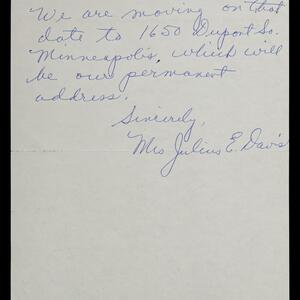 We are moving on that
date to 1650 Dupont So.
Minneapolis, which will
be our permanent
address.
Sincerely,
Mrs Julius E. Davis